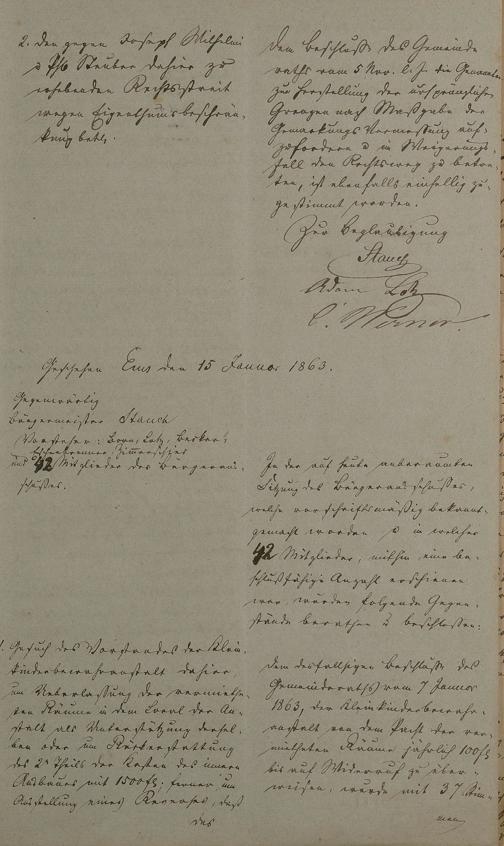 2. den gegen Joseph Wilhelmi
u Ph. Steuber dahier zu
erhebenden Rechtsstreit
wegen Eigenthumsbeschrän-
kung betr.
dem Beschluß des Gemeinde
raths vom 5 Nov. l. J. die Genannten
zur Herstellung der ursprünglichen
Grenzen nach Maßgabe der
Gemarkungs Vermessung auf-
zufordern u in Weigerungs-
fall den Rechtsweg zu betre-
ten, ist ebenfalls einhellig zu-
gestimmt worden.
Zur Beglaubigung
Stauch
Adam Lotz
C. Werner.
Geschehen Ems den 15 Januar 1863.
Gegenwärtig
Bürgermeister Stauch
Vorsteher: Born, Lotz, Becker,
und 42 Mitglieder des Bürgeraus-
schußes.
In der auf heute anberaumten
Sitzung des Bürgerausschußes,
welche vorschriftsmäßig bekannt
gemacht worden u in welcher
42 Mitglieder, mithin eine be-
schlußfähige Anzahl erschienen
war, wurden folgende Gegen-
stände berathen & beschlossen:
1. Gesuch des Vorstandes der Klein-
kinderbewahranstalt dahier,
um Ueberlassung der vermiethe-
ten Räume in dem Local der An-
stalt als Unterstützung dersel-
ben oder um Rückerstattung
des 2n Theils der Kosten des innern
Ausbaues mit 1500 fl; ferner um
Ausstellung eines Reverses, daß
das
dem desfallsigen Beschluß des
Gemeinderaths vom 7 Januar
1863, der Kleinkinderbewahr-
anstalt von dem Pacht der ver-
mietheten Räume jährlich 100 fl
bis auf Widerruf zu über-
weisen, wurde mit 37 Stim-
men